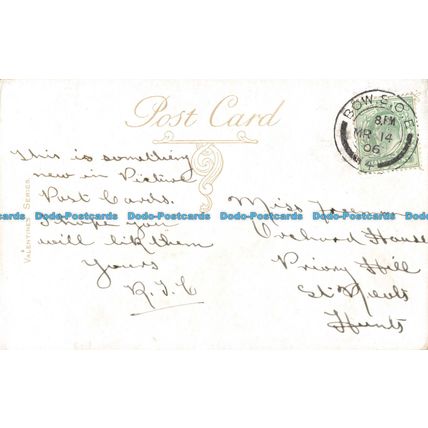 Post Card
BOW.S.O.E
8.PM
MR 14
06
VALENTINE'S SERIES
This is something
new in Picture
Post Cards.
I hope you
will like them
Yours
R.J.C
Miss
Orchard House
Priory Hill
St Neots
Hunts
Dodo-Postcards Dodo-Postcards Dodo-Postcards Dodo-Postcards Dodo-Postcards